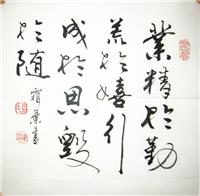 業精於勤
荒於嬉行
成於思毀
於随
霜葉書